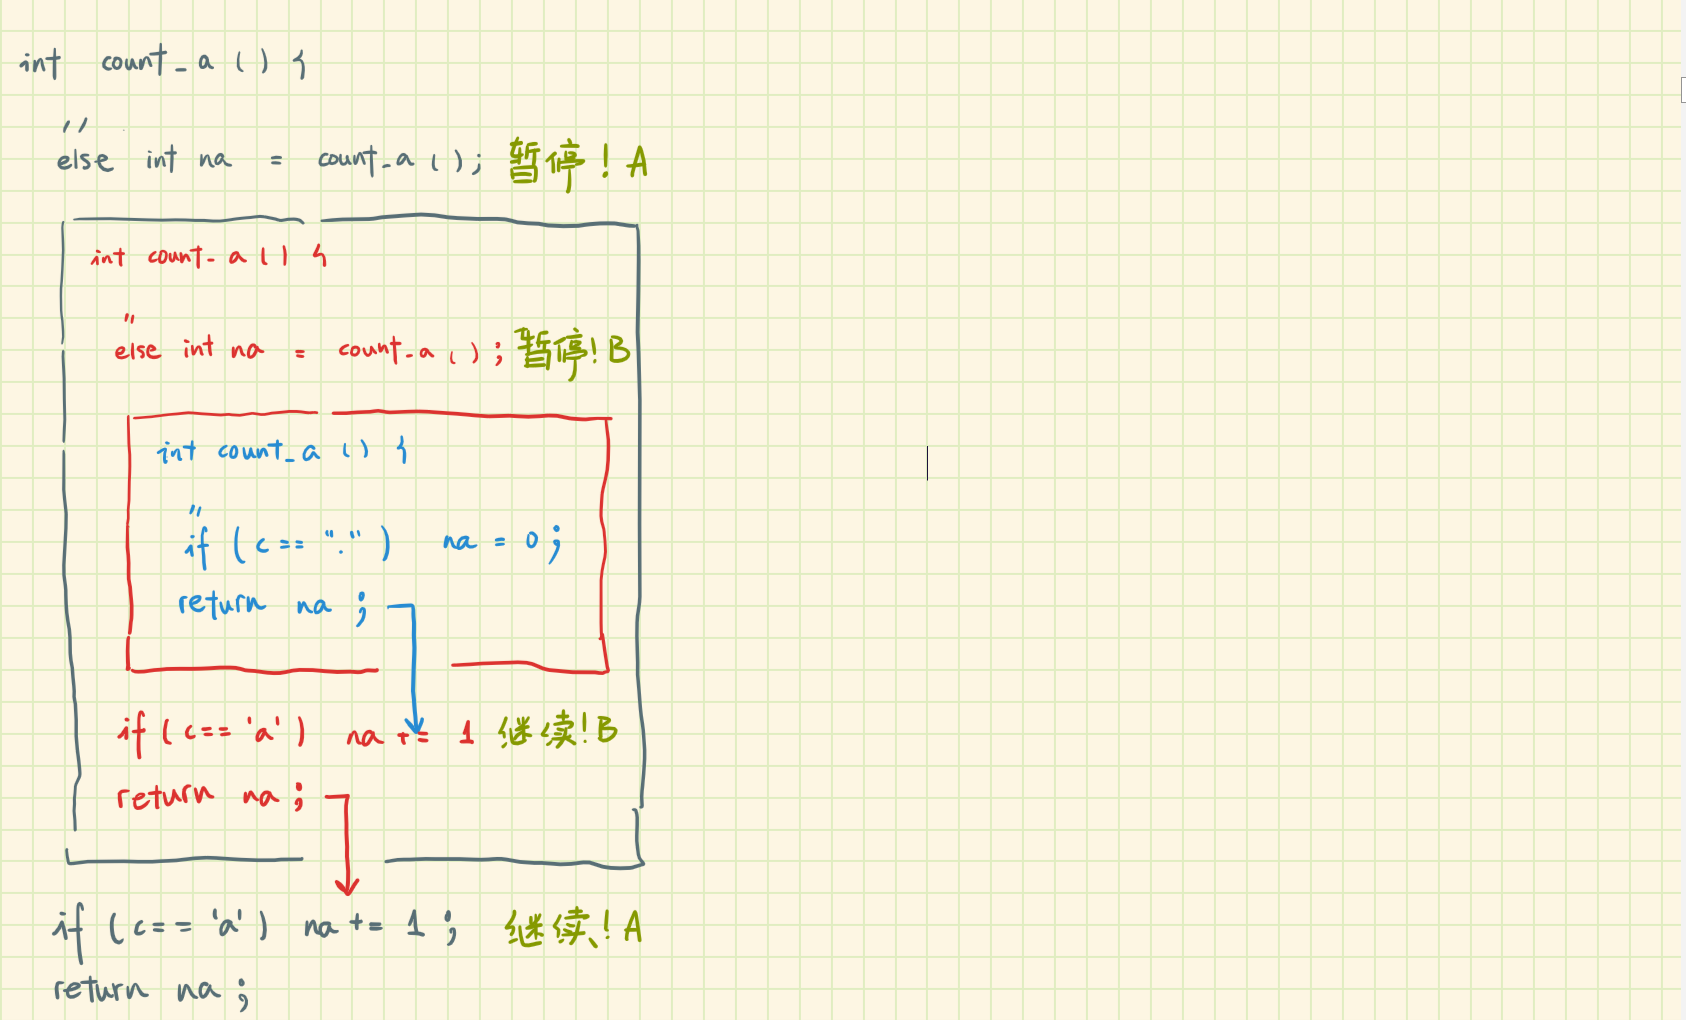 int count_a () {
//
else int na = count_a (); 暂停! A
int count_a () {
//
else int na = count_a (); 暂停! B
int count_a () {
//
if (c == ".") na = 0;
return na;
if (c == 'a') na += 1 继续! B
return na;
if (c == 'a') na += 1; 继续! A
return na;